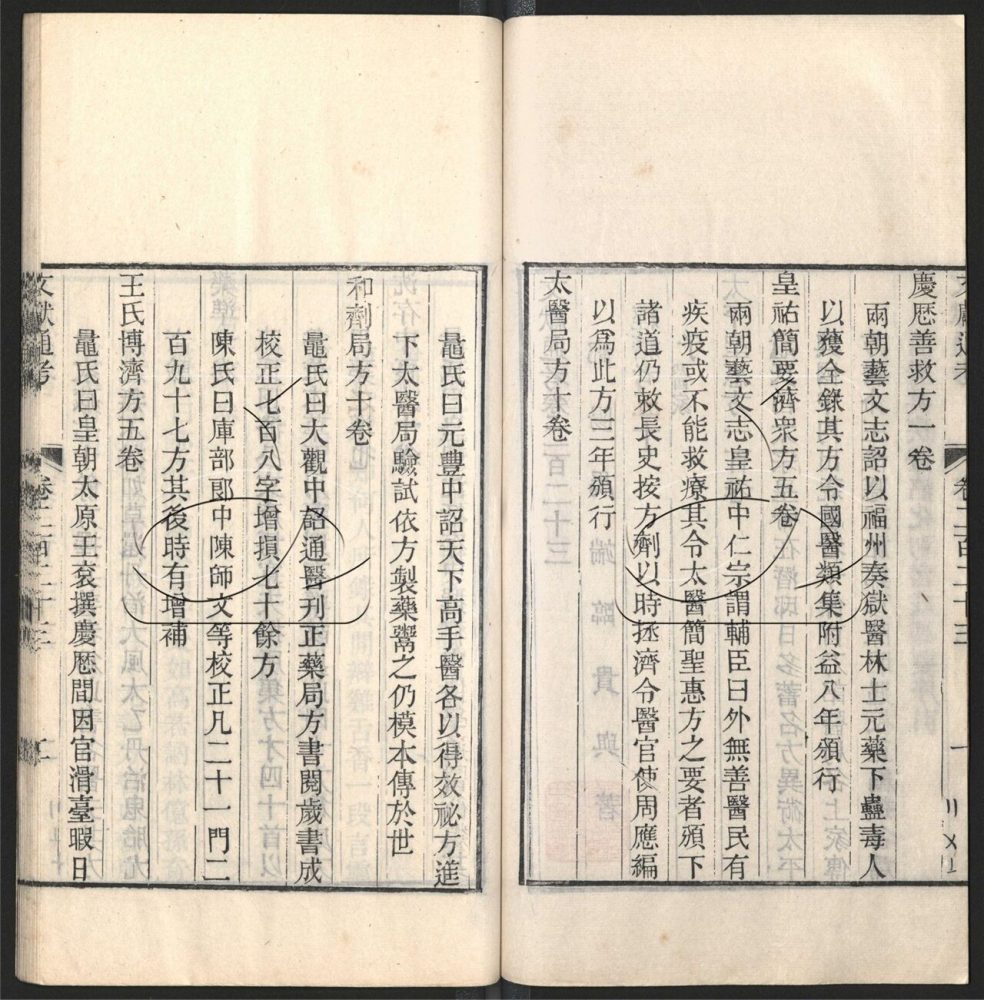 慶厯善救方一卷
兩朝藝文志詔以福州奏獄醫林士元藥下蠱毒人
以獲全錄其方令國醫類集附益八年頒行
皇祐簡要濟衆方五卷
兩朝藝文志皇祐中仁宗謂輔臣曰外無善醫民有
疾疫或不能救療其令太醫簡聖惠方之要者頒下
諸道仍敕長史按方劑以時拯濟令醫官使周應編
以爲此方三年頒行
太醫局方十卷
鼂氏曰元豐中詔天下高手醫各以得效秘方進
下太醫局驗試依方製藥鬻之仍模本傳於世
和劑局方十卷
鼂氏曰大觀中詔通醫刊正藥局方書閱歲書成
校正七百八字增損七十餘方
陳氏曰庫部郎中陳師文等校正凡二十一門二
百九十七方其後時有增補
王氏博濟方五卷
鼂氏曰皇朝太原王袞撰慶厯間因官滑臺暇日
文獻通考 卷二百二十三 二